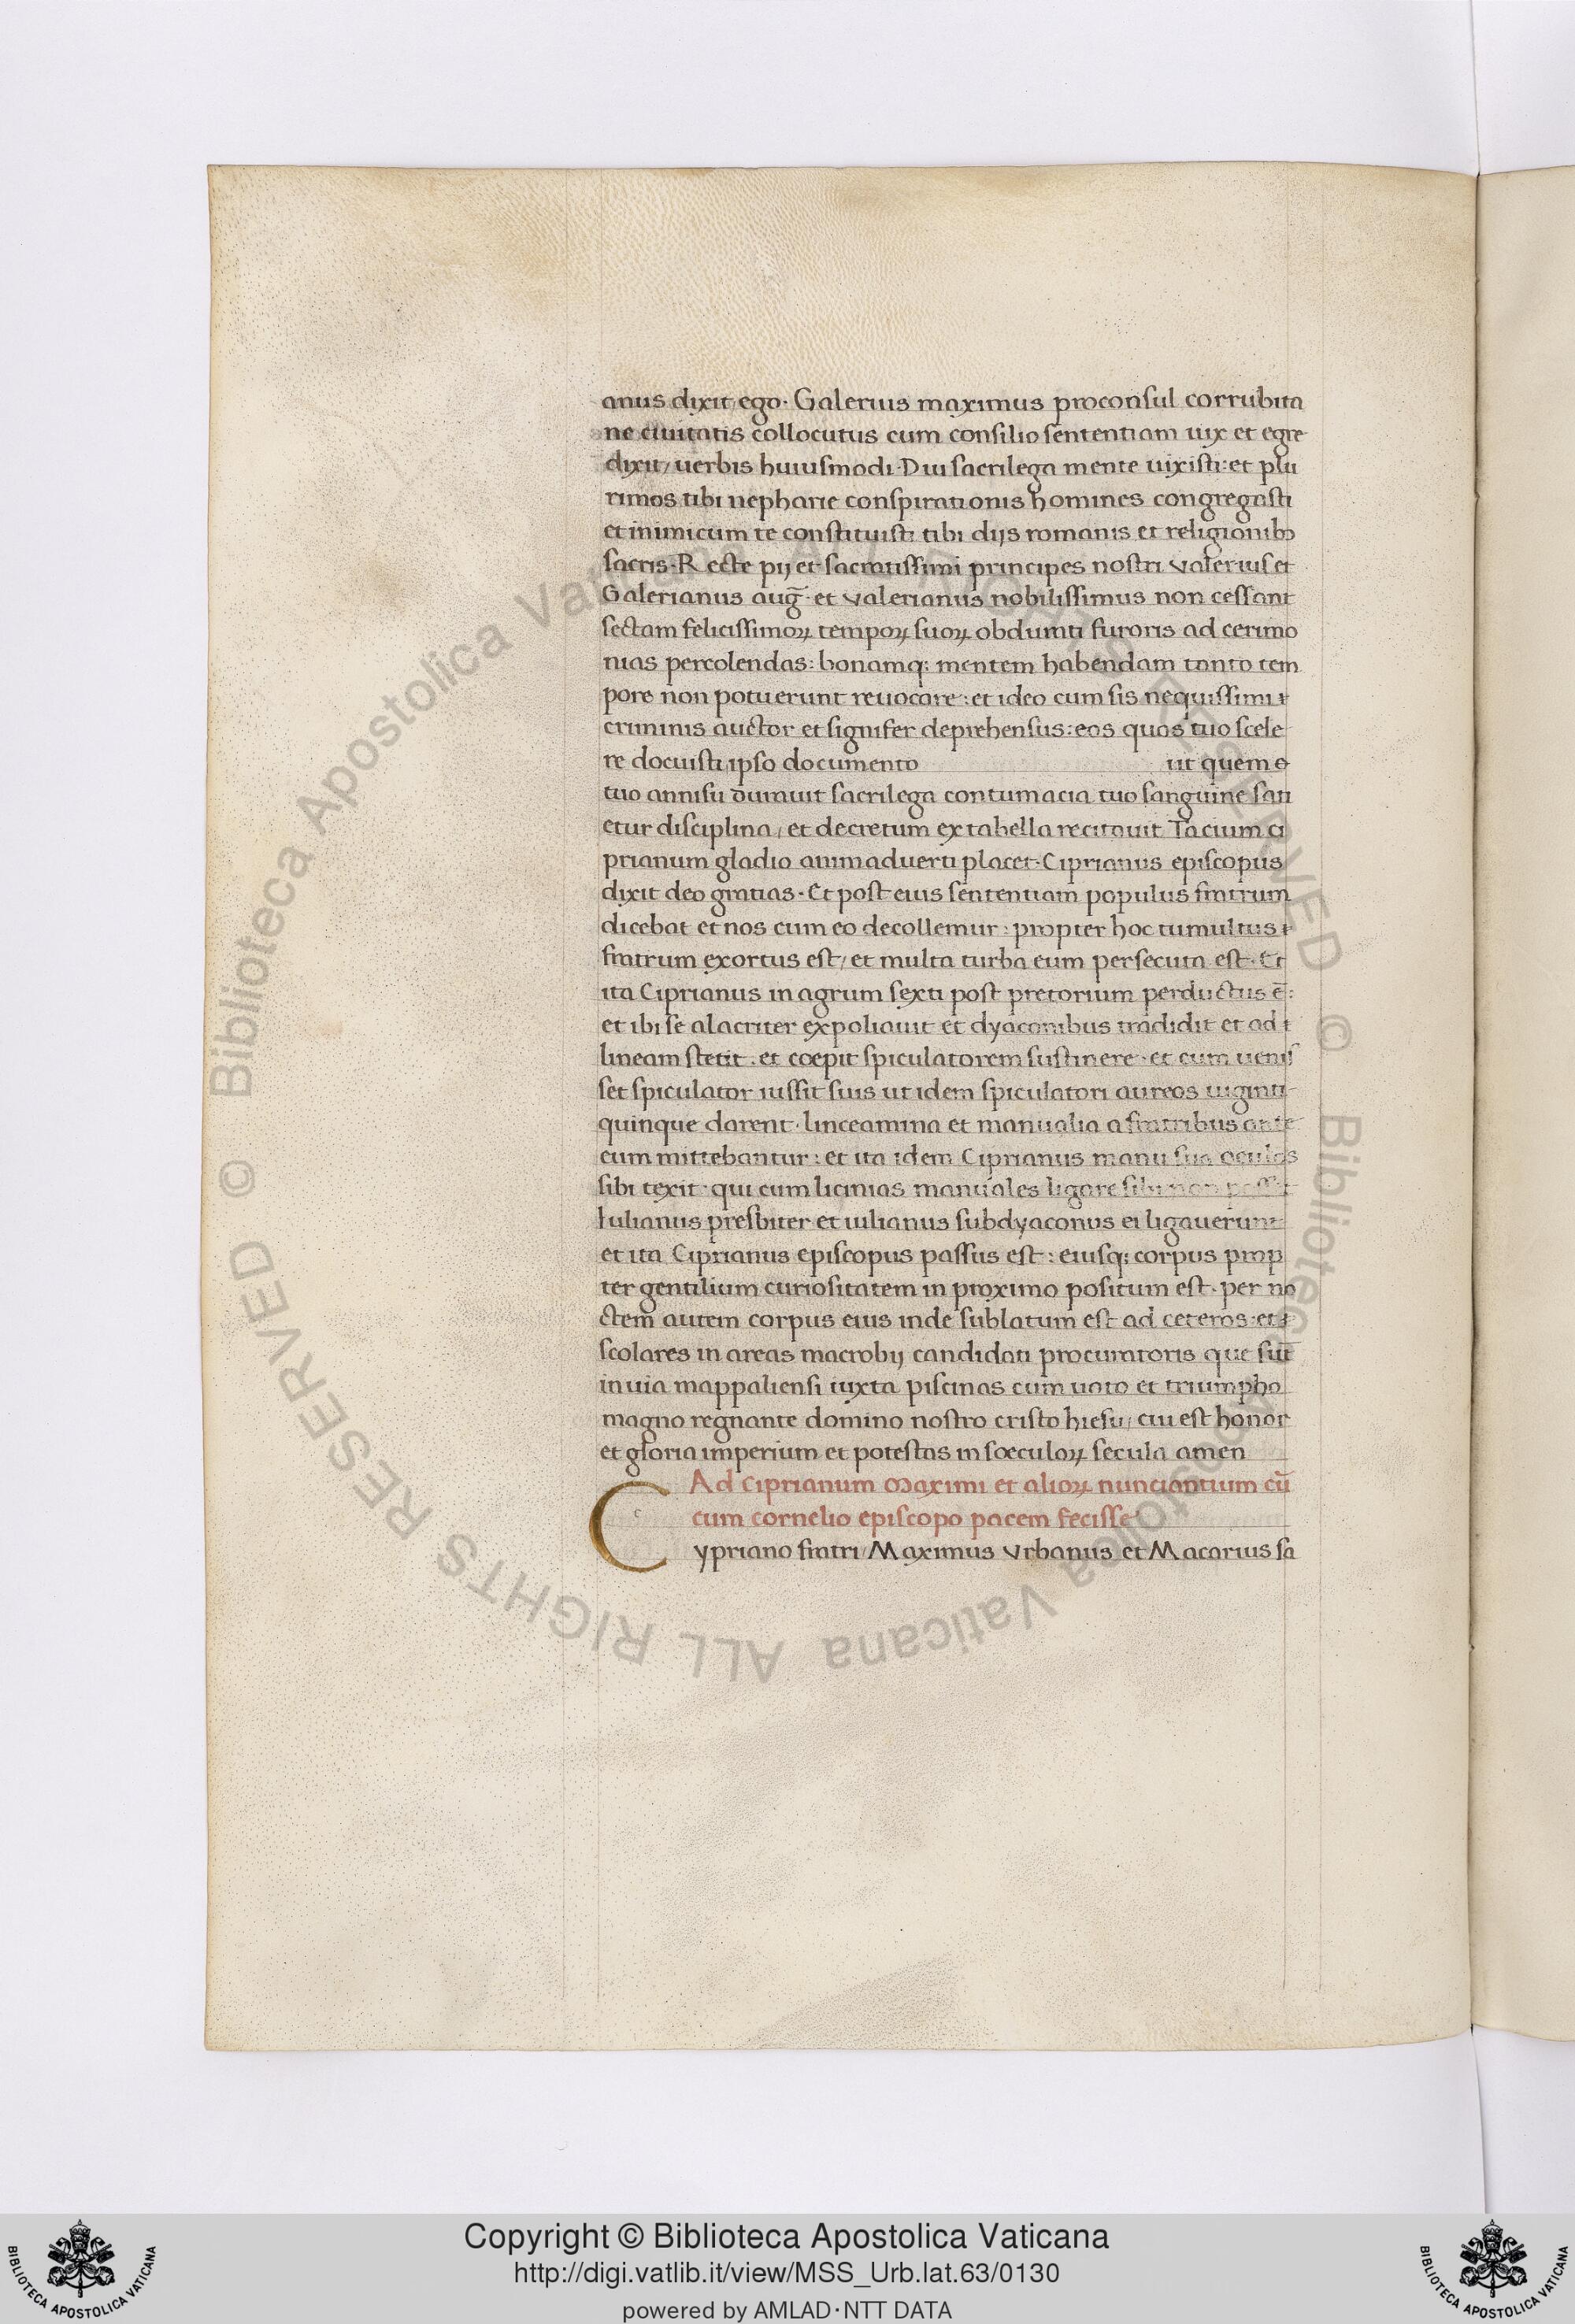 anus dixit ego· Galerius maximus proconsul corrubita
ne ciuitatis collocutus cum consilio sententiam uix et egre
dixit/ uerbis huiusmodi· Diu sacrilega mente uixisti: et plu
rimos tibi nepharie conspirationis homines congregasti
et inimicum te constituisti tibi dijs romanis et religionibꝰ
sacris· Recte pij et sacratissimi principes nostri valerius et
Galerianus aug̃· et valerianus nobilissimus non cessant
sectam felicissimoꝝ tempoꝝ suoꝝ obdumti furoris ad cerimo
nias percolendas: bonamq; mentem habendam tanto tem
pore non potuerunt reuocare: et ideo cum sis nequissimi
criminis auctor et signifer deprehensus: eos quos tuo scele
re docuisti ipso documento ut quem e
tuo annisu durauit sacrilega contumacia tuo sanguine sati
etur disciplina/ et decretum ex tabella recitauit Tacium ci
prianum gladio animaduerti placet· Ciprianus episcopus
dixit deo gratias· Et post eius sententiam populus fratrum
dicebat et nos cum eo decollemur: propter hoc tumultus
fratrum exortus est/ et multa turba eum persecuta est· Et
ita Ciprianus in agrum sexti post pretorium perductus ē:
et ibi se alacriter expoliauit et dyaconibus tradidit et ad
lineam stetit· et coepit spiculatorem sustinere· et cum uenis
set spiculator iussit suis ut idem spiculatori aureos uiginti
quinque darent· linceamina et manualia a fratribus ante
eum mittebantur: et ita idem Ciprianus manu sua oculos
sibi texit· qui cum licinias manuales ligare sibi non posset
Iulianus presbiter et iulianus subdyaconus ei ligauerunt
et ita Ciprianus episcopus passus est: eiusq; corpus prop
ter gentilium curiositatem in proximo positum est· per no
ctem autem corpus eius inde sublatum est ad ceteros· et
scolares in areas macrobij candidati procuratoris que sūt
in uia mappaliensi iuxta piscinas cum uoto et triumpho
magno regnante domino nostro cristo hiesu/ cui est honor
et gloria imperium et potestas in soeculoꝝ secula amen
Ad Ciprianum Maximi et alioꝝ nunciantium cū
cum cornelio episcopo pacem fecisse
Cypriano fratri Maximus Vrbanus et Macarius sa
© Biblioteca Apostolica Vaticana ALL RIGHTS RESERVED © Biblioteca Apostolica Vaticana ALL RIGHTS RESERVED
Copyright © Biblioteca Apostolica Vaticana
http://digi.vatlib.it/view/MSS_Urb.lat.63/0130
powered by AMLAD·NTT DATA
BIBLIOTECA APOSTOLICA VATICANA
BIBLIOTECA APOSTOLICA VATICANA